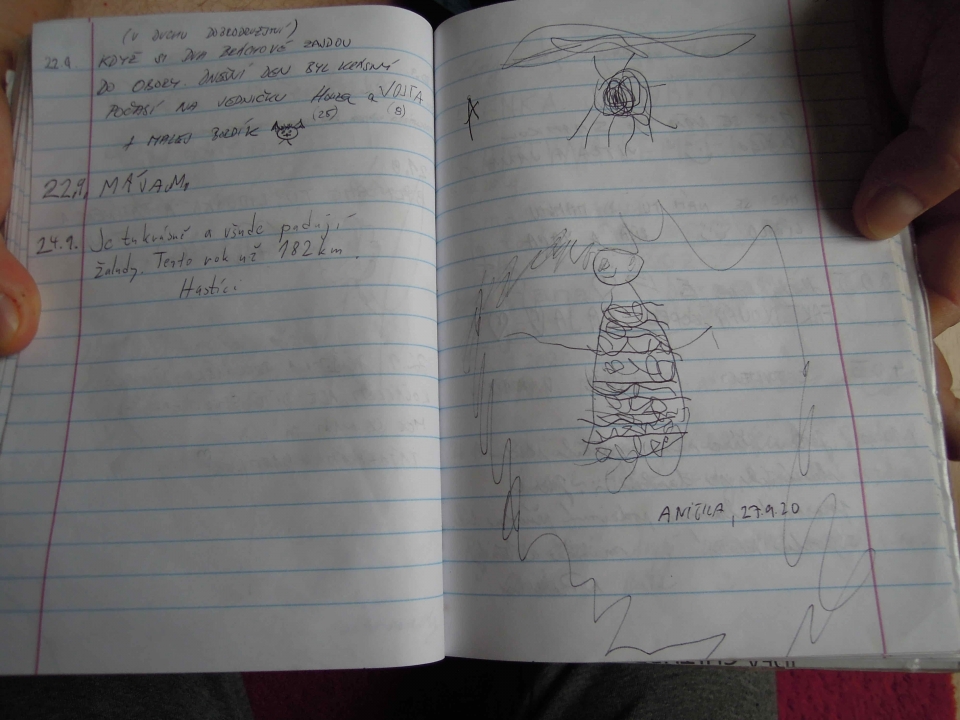 (V DUCHU DOBRODRUŽSTVÍ)
22.9. KDYŽ SI DVA ZAJDOU
DO OBORY. DNEŠNÍ DEN BYL KRÁSNÝ.
POČASÍ NA JEDNIČKU HONZA A VOJTA
(25) (8)
+ MALEJ
22.9. MŇÁVAM.
24.9. Je tu krásně a všude padají
žaludy. Tento rok už 182 km.
A
ANIČKA, 27.9.20